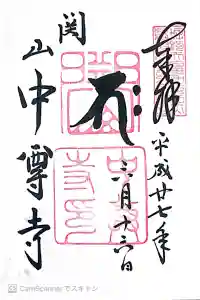 奉拝
平成廿七年
三月十六日
関
山中尊寺
CamScannerでスキャン